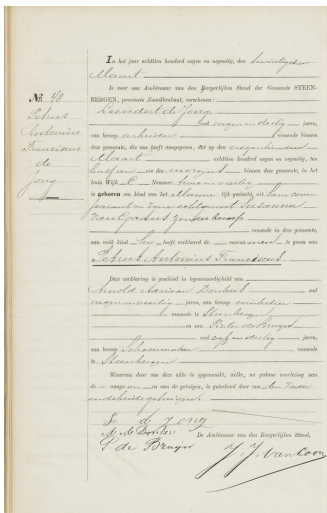 In het jaar achttien honderd negen en negentig, den
Maart
is voor ons Ambtenaar van den Burgerlijken Stand der Gemeente STEEN-
BERGEN, provincie Noordbrabant, verschenen:
Leendert de Jong
oud negen en dertig jaren,
van beroep arbeider wonende binnen
deze gemeente, die ons heeft aangegeven, dat op den
Maart achttien honderd negen en negentig, ten
ure des morgens binnen deze gemeente, in het
huis Wijk C Nummer
is geboren een kind van het Mann lijk geslacht, uit hem com-
parant en zijne echtgenoot Susanna
van zonder beroep
wonende in deze gemeente,
aan welk kind hij heeft verklaard de voornamen te geven van
Petrus Antonius Franciscus
Deze verklaring is geschied in tegenwoordigheid van
Arnold Adriaan oud
negen en veertig jaren, van beroep
wonende te Steenbergen
en van Pieter de Bruijn
oud vijf en dertig jaren,
van beroep Schoenmaker wonende
te Steenbergen
Waarvan door ons deze akte is opgemaakt, welke, na gedane voorlezing aan
de aangever en aan de getuigen, is geteekend door ons den Vader
en de beide getuigen
L de Jong
P de Bruijn
De Ambtenaar van den Burgerlijken Stand,
J. J. van Loon
No. 48
Petrus
Antonius
Franciscus
de
Jong